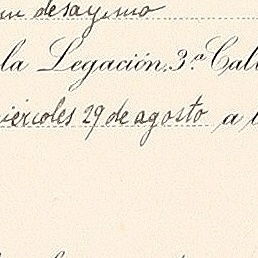 un desayuno
la Legación, 3.ª Call
miércoles 29 de agosto a l